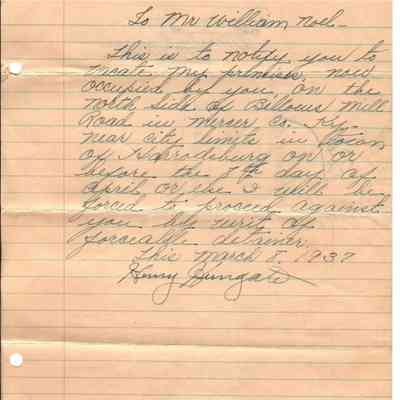 To Mr William Noel-
This is to notify you to
vacate my primises, now
occupied by you, on the
north side of Bellows Mill
Road in Mercer Co. Ky.
near city limits in town
of Harrodsburg on or
before the 8th day of
April or else I will be
forced to proceed against
you by writ of
forceable detainer.
This March 8, 1937
Henry Bungate